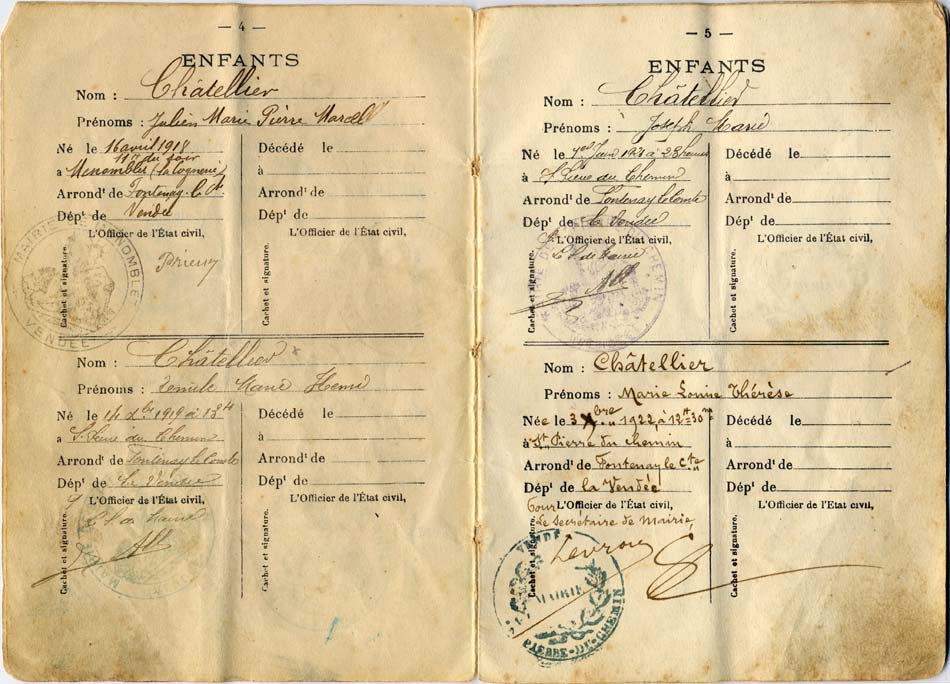 — 4 —
ENFANTS
Nom : Châtellier
Prénoms : Julien Marie Pierre Marcel
Né le 16 avril 1918
11h du soir
à Menomblet (la
Arrond^t de Fontenay-le-C^te
Dép^t de Vendée
L'Officier de l'État civil,
Cachet et signature.
MAIRIE MENOMBLET
VENDÉE
Décédé le
à
Arrond^t de
Dép^t de
L'Officier de l'État civil,
Cachet et signature.
Nom : Châtellier
Prénoms : Marie Henri
Né le 14 x^bre 1919 à 13^h
à S^t Pierre du Chemin
Arrond^t de Fontenay le Comte
Dép^t de La Vendée
L'Officier de l'État civil,
Le S. de Mairie
Cachet et signature.
Décédé le
à
Arrond^t de
Dép^t de
L'Officier de l'État civil,
Cachet et signature.
— 5 —
ENFANTS
Nom : Châtellier
Prénoms : Joseph Marie
Né le 1921 à
à S^t Pierre du Chemin
Arrond^t de Fontenay le Comte
Dép^t de la Vendée
L'Officier de l'État civil,
Le S. de Mairie
Cachet et signature.
CHEMIN
Décédé le
à
Arrond^t de
Dép^t de
L'Officier de l'État civil,
Cachet et signature.
Nom : Châtellier
Prénoms : Marie Louise Thérèse
Née le 3 X^bre 1922 à 12^h 30^m
à S^t Pierre du chemin
Arrond^t de Fontenay le C^te
Dép^t de la Vendée
Pour L'Officier de l'État civil,
Le Secrétaire de Mairie,
Cachet et signature.
MAIRIE
PIERRE-DU-CHEMIN
Décédé le
à
Arrond^t de
Dép^t de
L'Officier de l'Etat civil,
Cachet et signature.